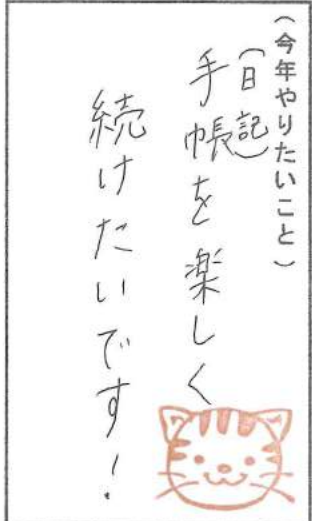 （今年やりたいこと）
（日記）
手帳を楽しく
続けたいです！